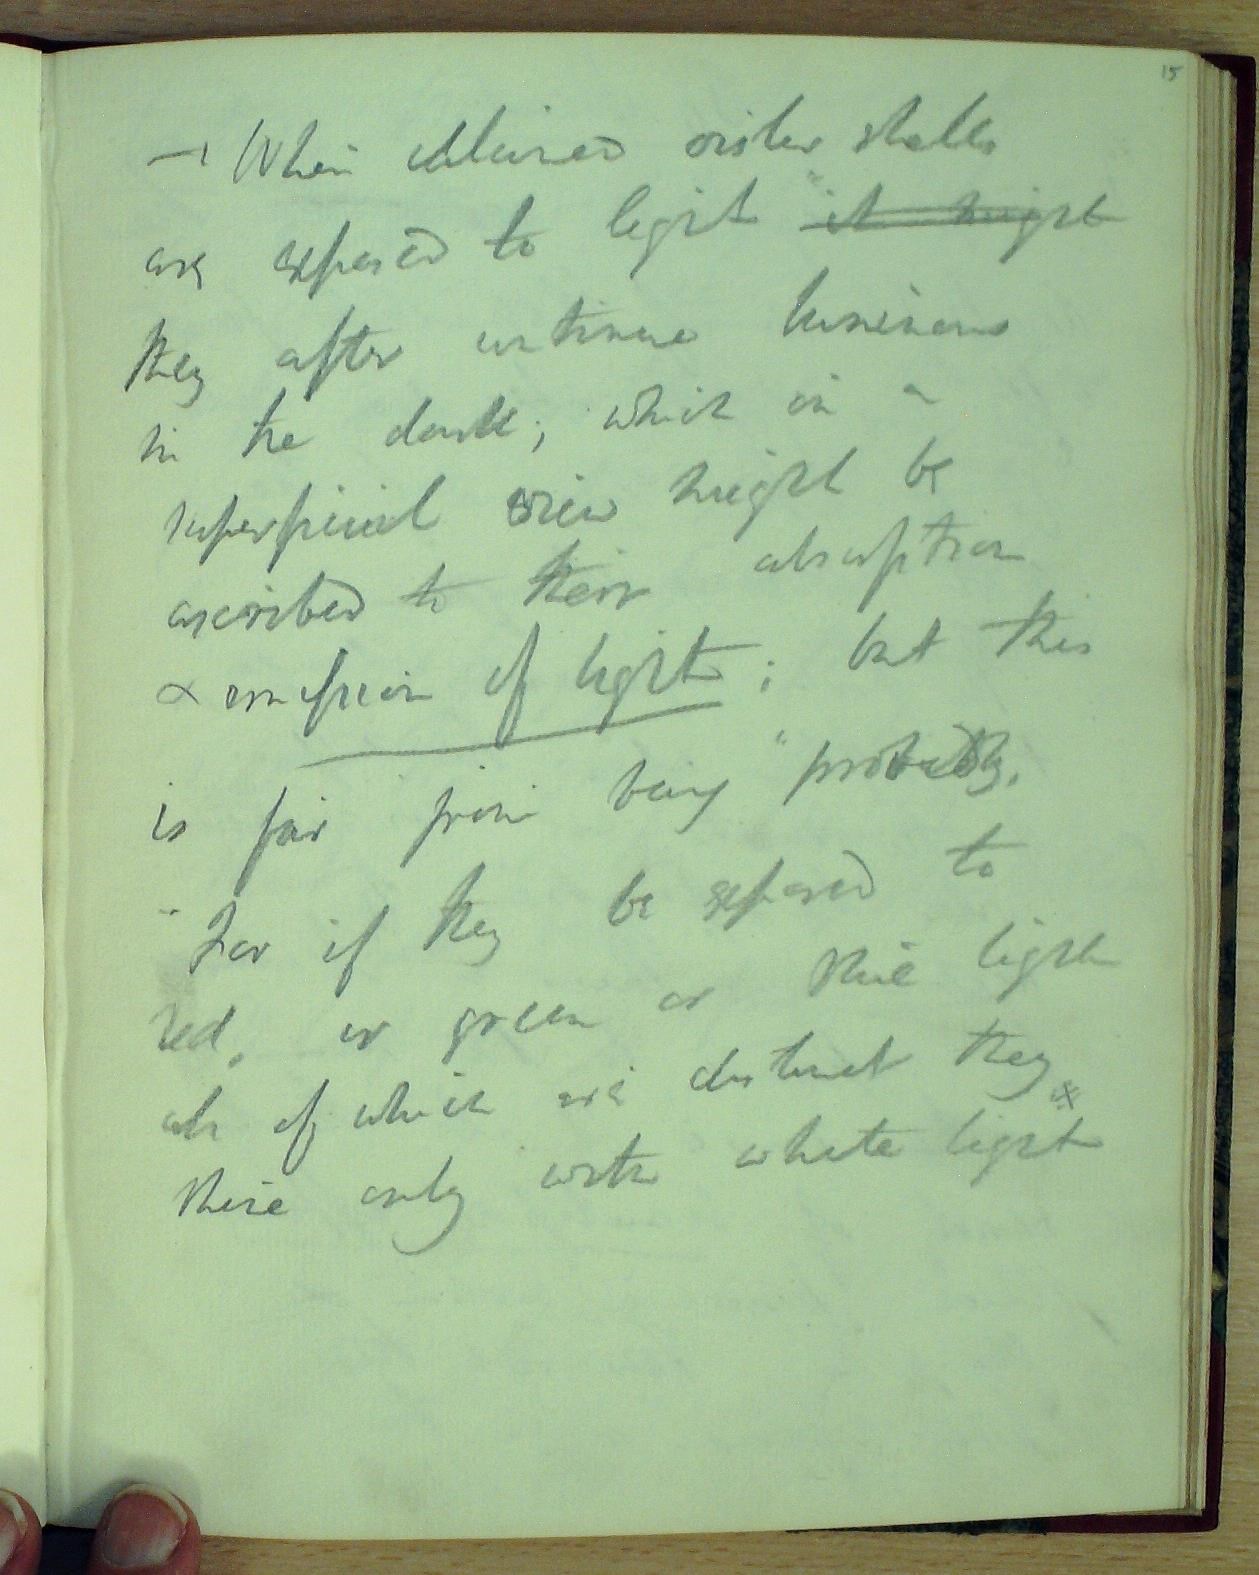 15
– When calcined oister shells
are exposed to light it might
they after continue luminous
in the dark; which in a
superficial view might be
ascribed to their absorption
& emission of light; but this
is far from being probable,
For if they be exposed to
red, or green or blue light
all of which are distinct they
shine only with white light